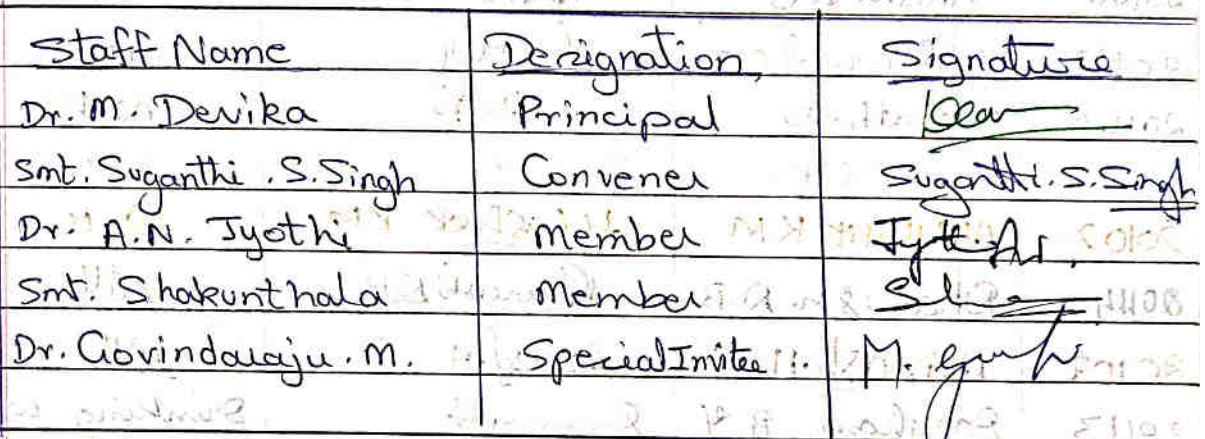 Staff Name Designation, Signature
Dr. M. Devika Principal
Smt. Suganthi . S. Singh Convener Suganthi. S. Singh
Dr. A.N. Jyothi member
Smt. Shakunthala member
Dr. Govindaraju. M. Special Invitee .